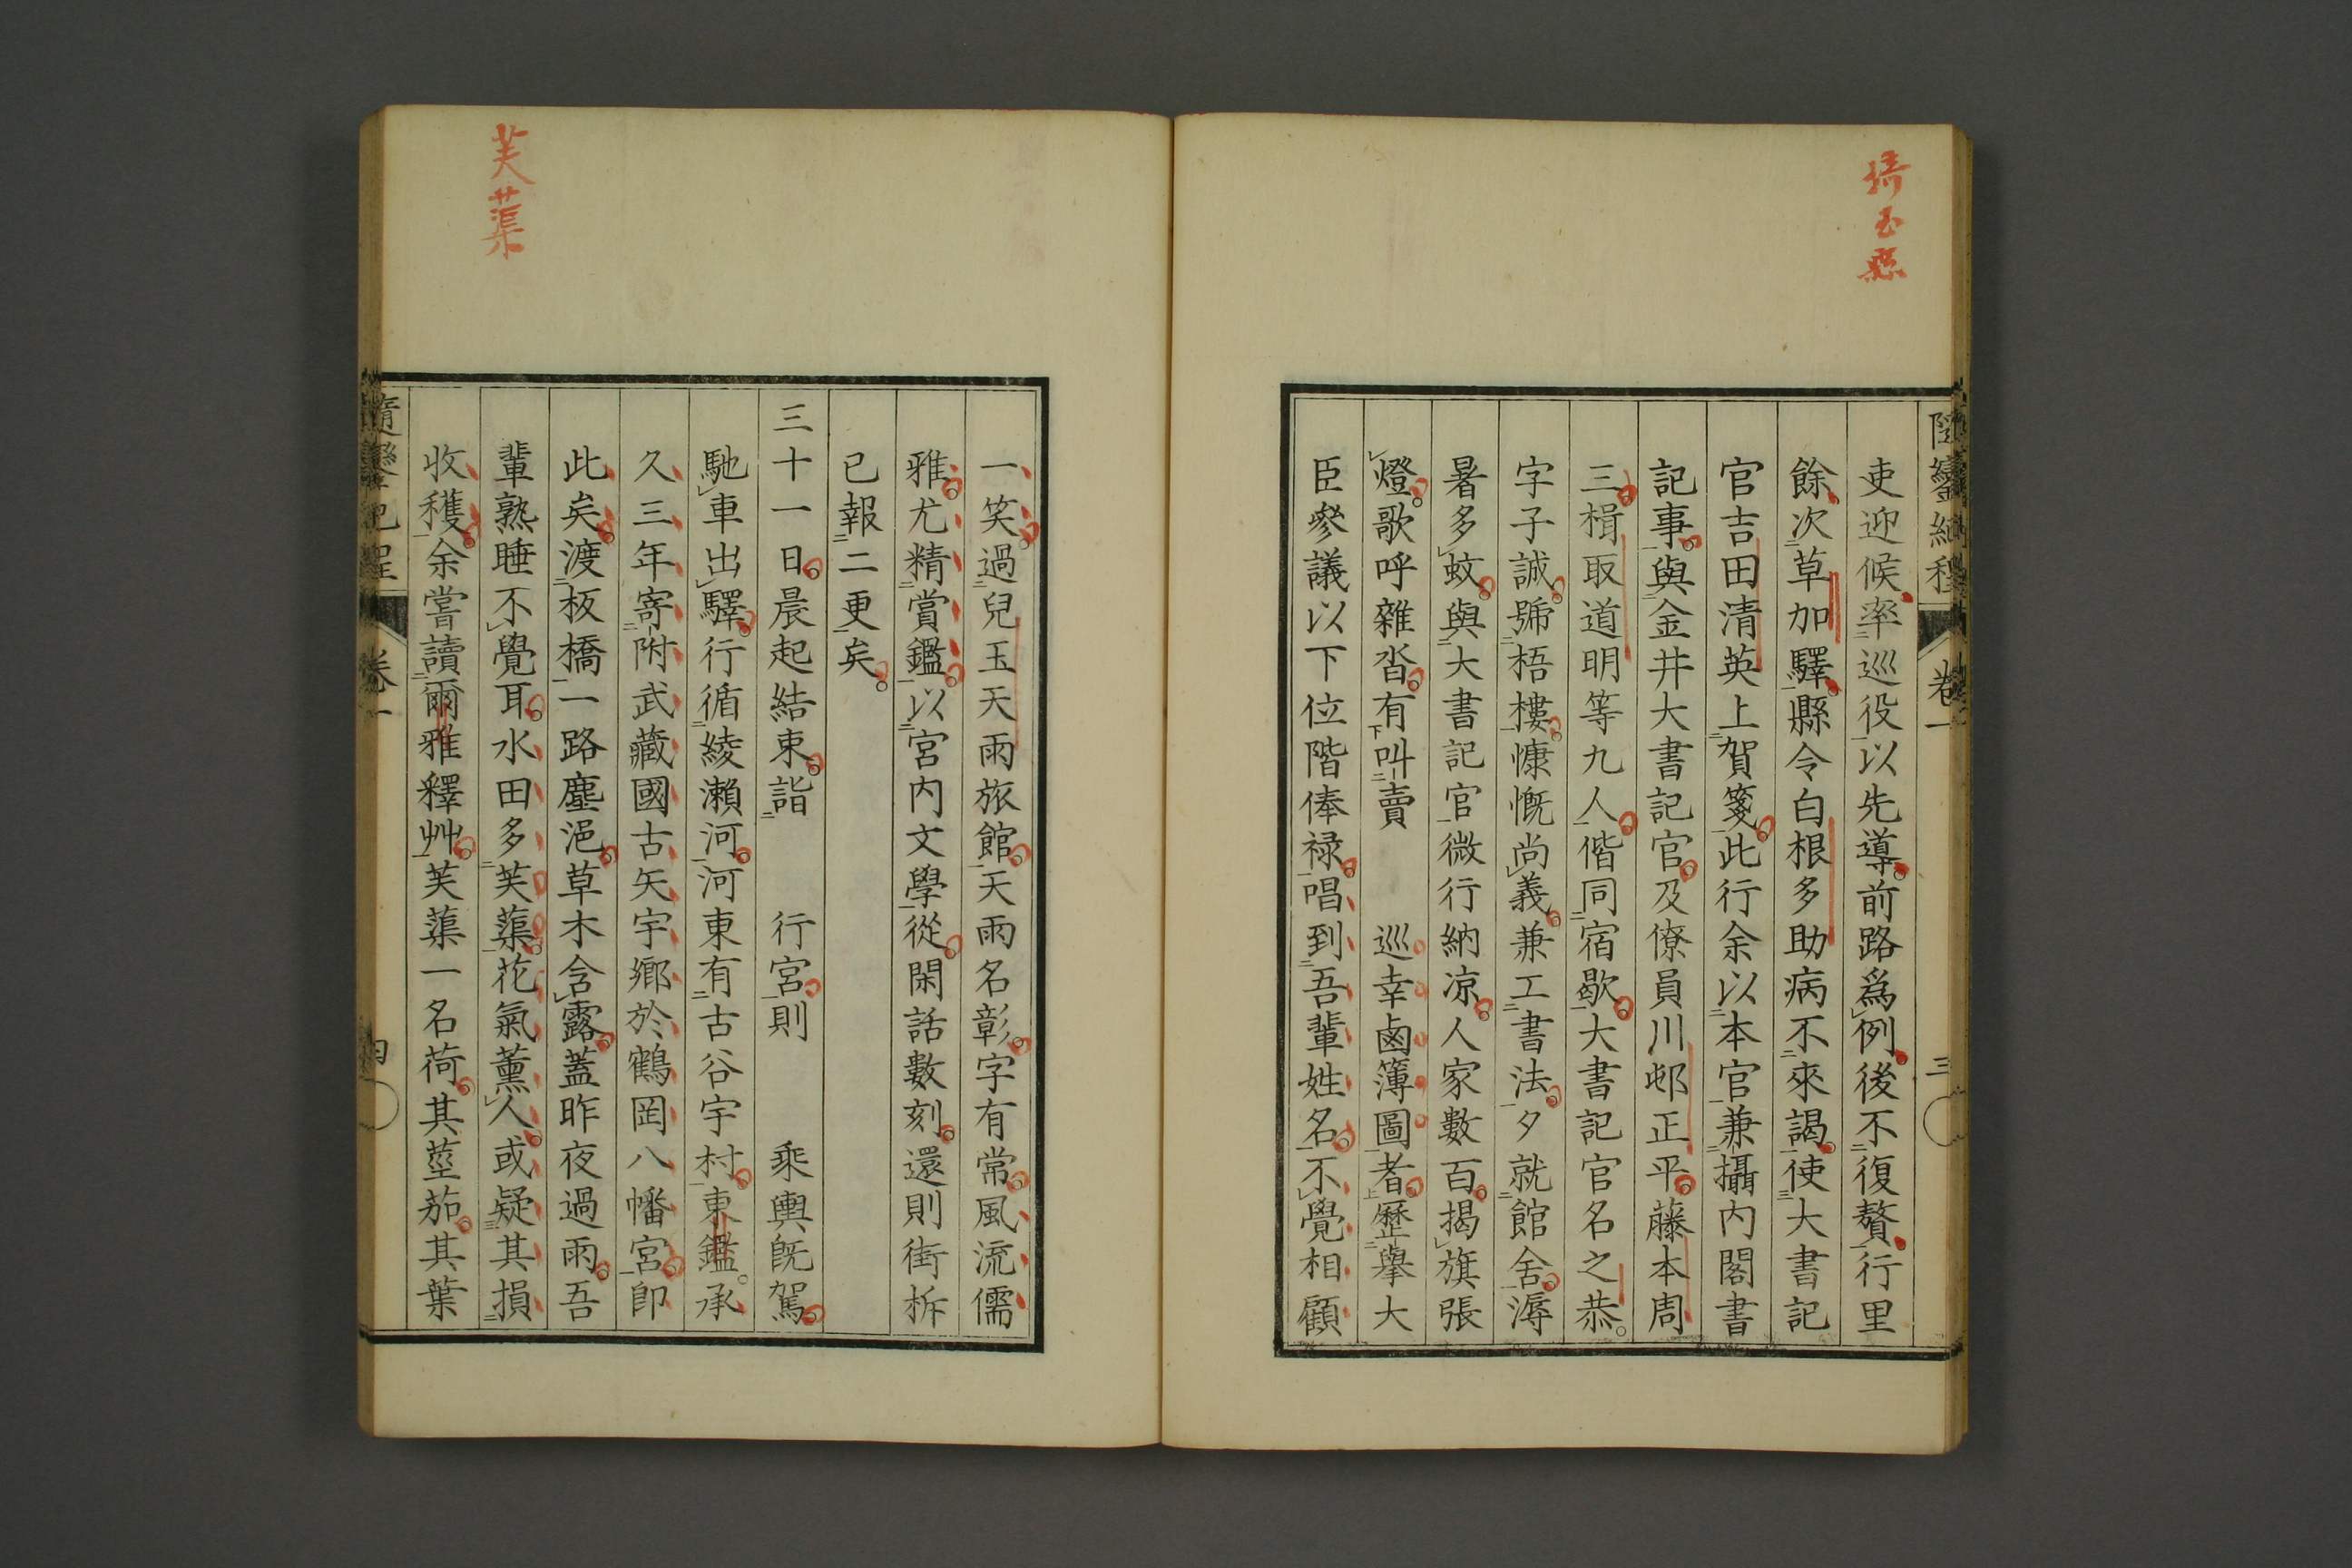 隨鑾紀程
卷一
三
吏迎候率巡役以先導。前路爲例。後不復贅。行里
餘次草加驛。縣令白根多助病不來謁。使大書記
官吉田清英上賀箋。此行余以本官兼攝内閣書
記事。與金井大書記官。及僚員川邨正平。藤本周
三。楫取道明等九人。偕同宿歇。大書記官名之恭。
字子誠。號梧樓。慷慨尚義。兼工書法。夕就館舍。溽
暑多蚊。與大書記官微行納凉。人家數百。揭旗張
燈。歌呼雜沓。有叫賣　巡幸鹵簿圖者。歷擧大
臣參議以下位階俸禄。唱到吾輩姓名。不覺相顧
一笑。過兒玉天雨旅館。天雨名彰。字有常。風流儒
雅。尤精賞鑑。以宮内文學從。閑話數刻。還則街柝
已報二更矣。
三十一日。晨起結束。詣　行宮。則　乘輿既駕。
馳車出驛。行循綾瀨河。河東有古谷宇村。東鑑。承
久三年寄附武藏國古矢宇鄕於鶴岡八幡宮。卽
此矣。渡板橋一路塵浥。草木含露。蓋昨夜過雨。吾
輩熟睡不覺耳。水田多芙蕖。花氣薰人。或疑其損
收穫。余嘗讀爾雅釋艸。芙蕖一名荷。其莖茄。其葉
隨鑾紀程
卷一
四
芙蕖